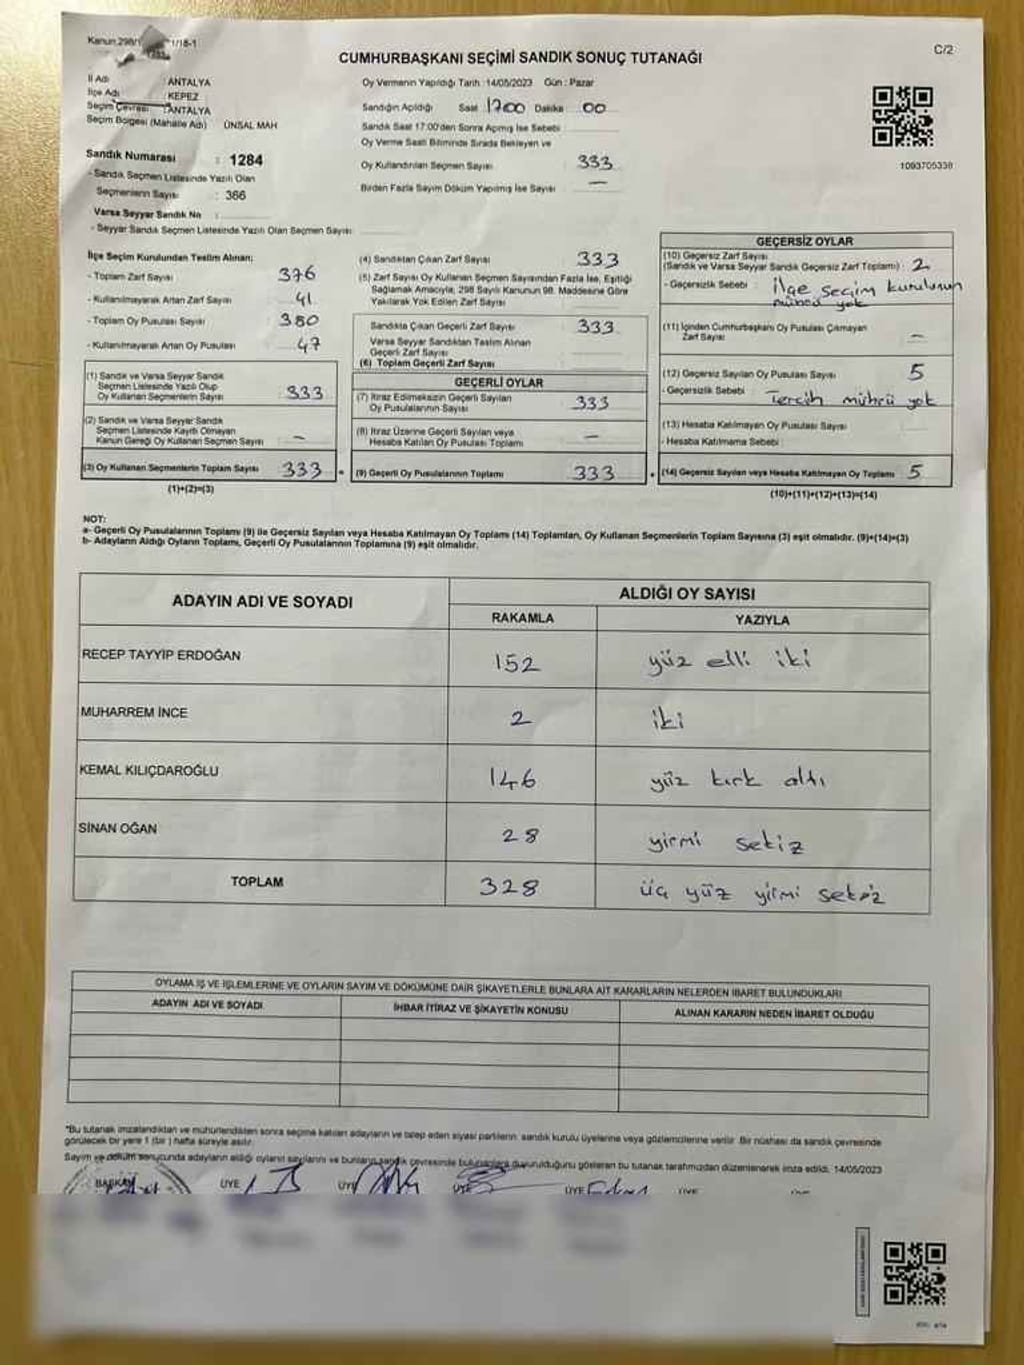 Kanun 298/
1/18-1
C/2
CUMHURBAŞKANI SEÇİMİ SANDIK SONUÇ TUTANAĞI
İl Adı : ANTALYA
İlçe Adı : KEPEZ
Seçim Çevresi : ANTALYA
Seçim Bölgesi (Mahalle Adı) ÜNSAL MAH
Sandık Numarası : 1284
- Sandık Seçmen Listesinde Yazılı Olan
Seçmenlerin Sayısı : 366
Varsa Seyyar Sandık No :
- Seyyar Sandık Seçmen Listesinde Yazılı Olan Seçmen Sayısı :
Oy Vermenin Yapıldığı Tarih : 14/05/2023 Gün : Pazar
Sandığın Açıldığı Saat 1700 Dakika 00
Sandık Saat 17:00'den Sonra Açmış İse Sebebi
Oy Verme Saati Bitiminde Sırada Bekleyen ve
Oy Kullandırılan Seçmen Sayısı : 333
Birden Fazla Sayım Döküm Yapılmış İse Sayısı : —
1093705338
İlçe Seçim Kurulundan Teslim Alınan:
- Toplam Zarf Sayısı : 376
- Kullanılmayarak Artan Zarf Sayısı : 41
- Toplam Oy Pusulası Sayısı : 380
- Kullanılmayarak Artan Oy Pusulası : 47
(1) Sandık ve Varsa Seyyar Sandık
Seçmen Listesinde Yazılı Olup
Oy Kullanan Seçmenlerin Sayısı : 333
(2) Sandık ve Varsa Seyyar Sandık
Seçmen Listesinde Kayıtlı Olmayan
Kanun Gereği Oy Kullanan Seçmen Sayısı : —
(3) Oy Kullanan Seçmenlerin Toplam Sayısı : 333
(1)+(2)=(3)
(4) Sandıktan Çıkan Zarf Sayısı : 333
(5) Zarf Sayısı Oy Kullanan Seçmen Sayısından Fazla İse, Eşitliği
Sağlamak Amacıyla, 298 Sayılı Kanunun 98. Maddesine Göre
Yakılarak Yok Edilen Zarf Sayısı :
Sandıkta Çıkan Geçerli Zarf Sayısı : 333
Varsa Seyyar Sandıktan Teslim Alınan
Geçerli Zarf Sayısı
(6) Toplam Geçerli Zarf Sayısı
GEÇERLİ OYLAR
(7) İtiraz Edilmeksizin Geçerli Sayılan
Oy Pusulalarının Sayısı : 333
(8) İtiraz Üzerine Geçerli Sayılan veya
Hesaba Katılan Oy Pusulası Toplamı : —
(9) Geçerli Oy Pusulalarının Toplamı : 333
GEÇERSİZ OYLAR
(10) Geçersiz Zarf Sayısı
(Sandık ve Varsa Seyyar Sandık Geçersiz Zarf Toplamı) : 2
- Geçersizlik Sebebi : ilçe seçim kurulunun
mührü yok
(11) İçinden Cumhurbaşkanı Oy Pusulası Çıkmayan
Zarf Sayısı : —
(12) Geçersiz Sayılan Oy Pusulası Sayısı : 5
- Geçersizlik Sebebi : Tercih mührü yok
(13) Hesaba Katılmayan Oy Pusulası Sayısı :
- Hesaba Katılmama Sebebi :
(14) Geçersiz Sayılan veya Hesaba Katılmayan Oy Toplamı : 5
(10)+(11)+(12)+(13)=(14)
NOT:
a- Geçerli Oy Pusulalarının Toplamı (9) ile Geçersiz Sayılan veya Hesaba Katılmayan Oy Toplamı (14) Toplamları, Oy Kullanan Seçmenlerin Toplam Sayısına (3) eşit olmalıdır. (9)+(14)=(3)
b- Adayların Aldığı Oyların Toplamı, Geçerli Oy Pusulalarının Toplamına (9) eşit olmalıdır.
ADAYIN ADI VE SOYADI
ALDIĞI OY SAYISI
RAKAMLA YAZIYLA
RECEP TAYYİP ERDOĞAN 152 yüz elli iki
MUHARREM İNCE 2 iki
KEMAL KILIÇDAROĞLU 146 yüz kırk altı
SİNAN OĞAN 28 yirmi sekiz
TOPLAM 328 üç yüz yirmi sekiz
OYLAMA İŞ VE İŞLEMLERİNE VE OYLARIN SAYIM VE DÖKÜMÜNE DAİR ŞİKAYETLERLE BUNLARA AİT KARARLARIN NELERDEN İBARET BULUNDUKLARI
ADAYIN ADI VE SOYADI İHBAR İTİRAZ VE ŞİKAYETİN KONUSU ALINAN KARARIN NEDEN İBARET OLDUĞU
*Bu tutanak imzalandıktan ve mühürlendikten sonra seçime katılan adayların ve talep eden siyasi partilerin sandık kurulu üyelerine veya gözlemcilerine verilir. Bir nüshası da sandık çevresinde
görülecek bir yere 1 (bir) hafta süreyle asılır.
Sayım ve döküm sonucunda adayların aldığı oyların sayılarını ve bunların sandık çevresinde bulunanlara duyurulduğunu gösteren bu tutanak tarafımızdan düzenlenerek imza edildi. 14/05/2023
BAŞKAN ÜYE ÜYE ÜYE ÜYE ÜYE